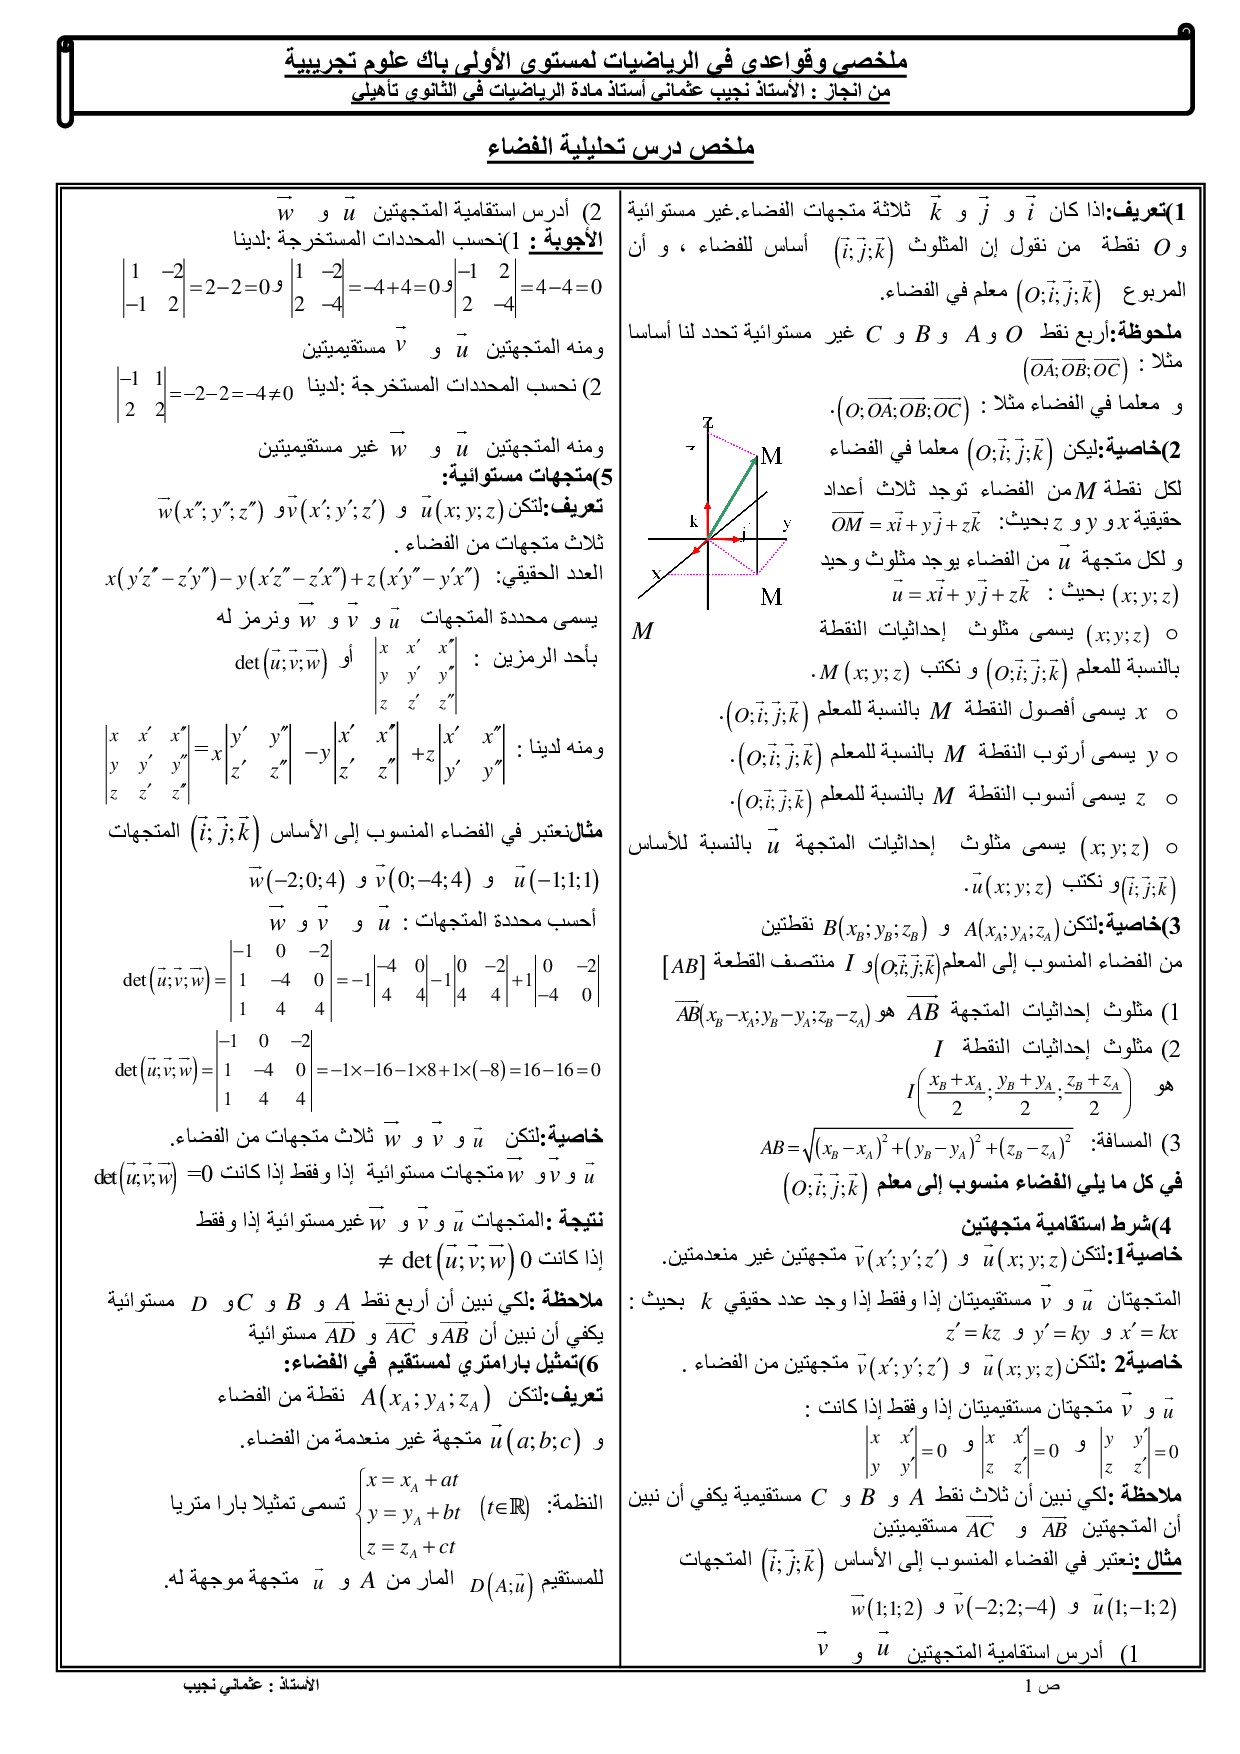 ملخصي وقواعدي في الرياضيات لمستوى الأولى باك علوم تجريبية
من انجاز : الأستاذ نجيب عثماني أستاذ مادة الرياضيات في الثانوي تأهيلي
ملخص درس تحليلية الفضاء
1)تعريف:اذا كان i⃗ و j⃗ و k⃗ ثلاثة متجهات الفضاء.غير مستوائية
و O نقطة من نقول إن المثلوث (i⃗; j⃗; k⃗) أساس للفضاء ، و أن
المربوع (O; i⃗; j⃗; k⃗) معلم في الفضاء.
ملحوظة:أربع نقط O و A و B و C غير مستوائية تحدد لنا أساسا
مثلا : (OA⃗; OB⃗; OC⃗)
و معلما في الفضاء مثلا : (O; OA⃗; OB⃗; OC⃗).
2)خاصية:ليكن (O; i⃗; j⃗; k⃗) معلما في الفضاء
لكل نقطة M من الفضاء توجد ثلاث أعداد
حقيقية x و y و z بحيث: OM⃗ = xi⃗ + yj⃗ + zk⃗
و لكل متجهة u⃗ من الفضاء يوجد مثلوث وحيد
(x; y; z) بحيث : u⃗ = xi⃗ + yj⃗ + zk⃗
z
M
k
j
y
x
M
o (x; y; z) يسمى مثلوث إحداثيات النقطة M
بالنسبة للمعلم (O; i⃗; j⃗; k⃗) و نكتب M(x; y; z).
o x يسمى أفصول النقطة M بالنسبة للمعلم (O; i⃗; j⃗; k⃗).
o y يسمى أرتوب النقطة M بالنسبة للمعلم (O; i⃗; j⃗; k⃗).
o z يسمى أنسوب النقطة M بالنسبة للمعلم (O; i⃗; j⃗; k⃗).
o (x; y; z) يسمى مثلوث إحداثيات المتجهة u⃗ بالنسبة للأساس
(i⃗; j⃗; k⃗) و نكتب u⃗(x; y; z).
3)خاصية:لتكن A(x_A; y_A; z_A) و B(x_B; y_B; z_B) نقطتين
من الفضاء المنسوب إلى المعلم (O; i⃗; j⃗; k⃗) و I منتصف القطعة [AB]
1) مثلوث إحداثيات المتجهة AB⃗ هو AB⃗(x_B − x_A; y_B − y_A; z_B − z_A)
2) مثلوث إحداثيات النقطة I
هو I((x_B + x_A)/2; (y_B + y_A)/2; (z_B + z_A)/2)
3) المسافة: AB = √((x_B − x_A)² + (y_B − y_A)² + (z_B − z_A)²)
في كل ما يلي الفضاء منسوب إلى معلم (O; i⃗; j⃗; k⃗)
4)شرط استقامية متجهتين
خاصية1:لتكن u⃗(x; y; z) و v⃗(x′; y′; z′) متجهتين غير منعدمتين.
المتجهتان u⃗ و v⃗ مستقيميتان إذا وفقط إذا وجد عدد حقيقي k بحيث :
x′ = kx و y′ = ky و z′ = kz
خاصية2 :لتكن u⃗(x; y; z) و v⃗(x′; y′; z′) متجهتين من الفضاء .
u⃗ و v⃗ متجهتان مستقيميتان إذا وفقط إذا كانت :
|y y′; z z′| = 0 و |x x′; z z′| = 0 و |x x′; y y′| = 0
ملاحظة :لكي نبين أن ثلاث نقط A و B و C مستقيمية يكفي أن نبين
أن المتجهتين AB⃗ و AC⃗ مستقيميتين
مثال :نعتبر في الفضاء المنسوب إلى الأساس (i⃗; j⃗; k⃗) المتجهات
u⃗(1; −1; 2) و v⃗(−2; 2; −4) و w⃗(1;1;2)
1) أدرس استقامية المتجهتين u⃗ و v⃗
2) أدرس استقامية المتجهتين u⃗ و w⃗
الأجوبة : 1)نحسب المحددات المستخرجة :لدينا
|−1 2; 2 −4| = 4−4 = 0 و |1 −2; 2 −4| = −4+4 = 0 و |1 −2; −1 2| = 2−2 = 0
ومنه المتجهتين u⃗ و v⃗ مستقيميتين
2) نحسب المحددات المستخرجة :لدينا |−1 1; 2 2| = −2−2 = −4 ≠ 0
ومنه المتجهتين u⃗ و w⃗ غير مستقيميتين
5)متجهات مستوائية:
تعريف:لتكن u⃗(x; y; z) و v⃗(x′; y′; z′) و w⃗(x″; y″; z″)
ثلاث متجهات من الفضاء .
العدد الحقيقي: x(y′z″ − z′y″) − y(x′z″ − z′x″) + z(x′y″ − y′x″)
يسمى محددة المتجهات u⃗ و v⃗ و w⃗ ونرمز له
بأحد الرمزين : |x x′ x″; y y′ y″; z z′ z″| أو det(u⃗; v⃗; w⃗)
ومنه لدينا : |x x′ x″; y y′ y″; z z′ z″| = x|y′ y″; z′ z″| − y|x′ x″; z′ z″| + z|x′ x″; y′ y″|
مثالنعتبر في الفضاء المنسوب إلى الأساس (i⃗; j⃗; k⃗) المتجهات
u⃗(−1;1;1) و v⃗(0;−4;4) و w⃗(−2;0;4)
أحسب محددة المتجهات : u⃗ و v⃗ و w⃗
det(u⃗; v⃗; w⃗) = |−1 0 −2; 1 −4 0; 1 4 4| = −1|−4 0; 4 4| −1|0 −2; 4 4| +1|0 −2; −4 0|
det(u⃗; v⃗; w⃗) = |−1 0 −2; 1 −4 0; 1 4 4| = −1×−16−1×8+1×(−8) = 16−16 = 0
خاصية:لتكن u⃗ و v⃗ و w⃗ ثلاث متجهات من الفضاء.
u⃗ و v⃗ و w⃗ متجهات مستوائية إذا وفقط إذا كانت det(u⃗; v⃗; w⃗) =0
نتيجة :المتجهات u⃗ و v⃗ و w⃗ غيرمستوائية إذا وفقط
إذا كانت det(u⃗; v⃗; w⃗) ≠ 0
ملاحظة :لكي نبين أن أربع نقط A و B و C و D مستوائية
يكفي أن نبين أن AB⃗ و AC⃗ و AD⃗ مستوائية
6)تمثيل بارامتري لمستقيم في الفضاء:
تعريف:لتكن A(x_A; y_A; z_A) نقطة من الفضاء
و u⃗(a; b; c) متجهة غير منعدمة من الفضاء.
النظمة: { x = x_A + at ; y = y_A + bt ; z = z_A + ct (t∈ℝ) تسمى تمثيلا بارا متريا
للمستقيم D(A; u⃗) المار من A و u⃗ متجهة موجهة له.
ص 1
الأستاذ : عثماني نجيب